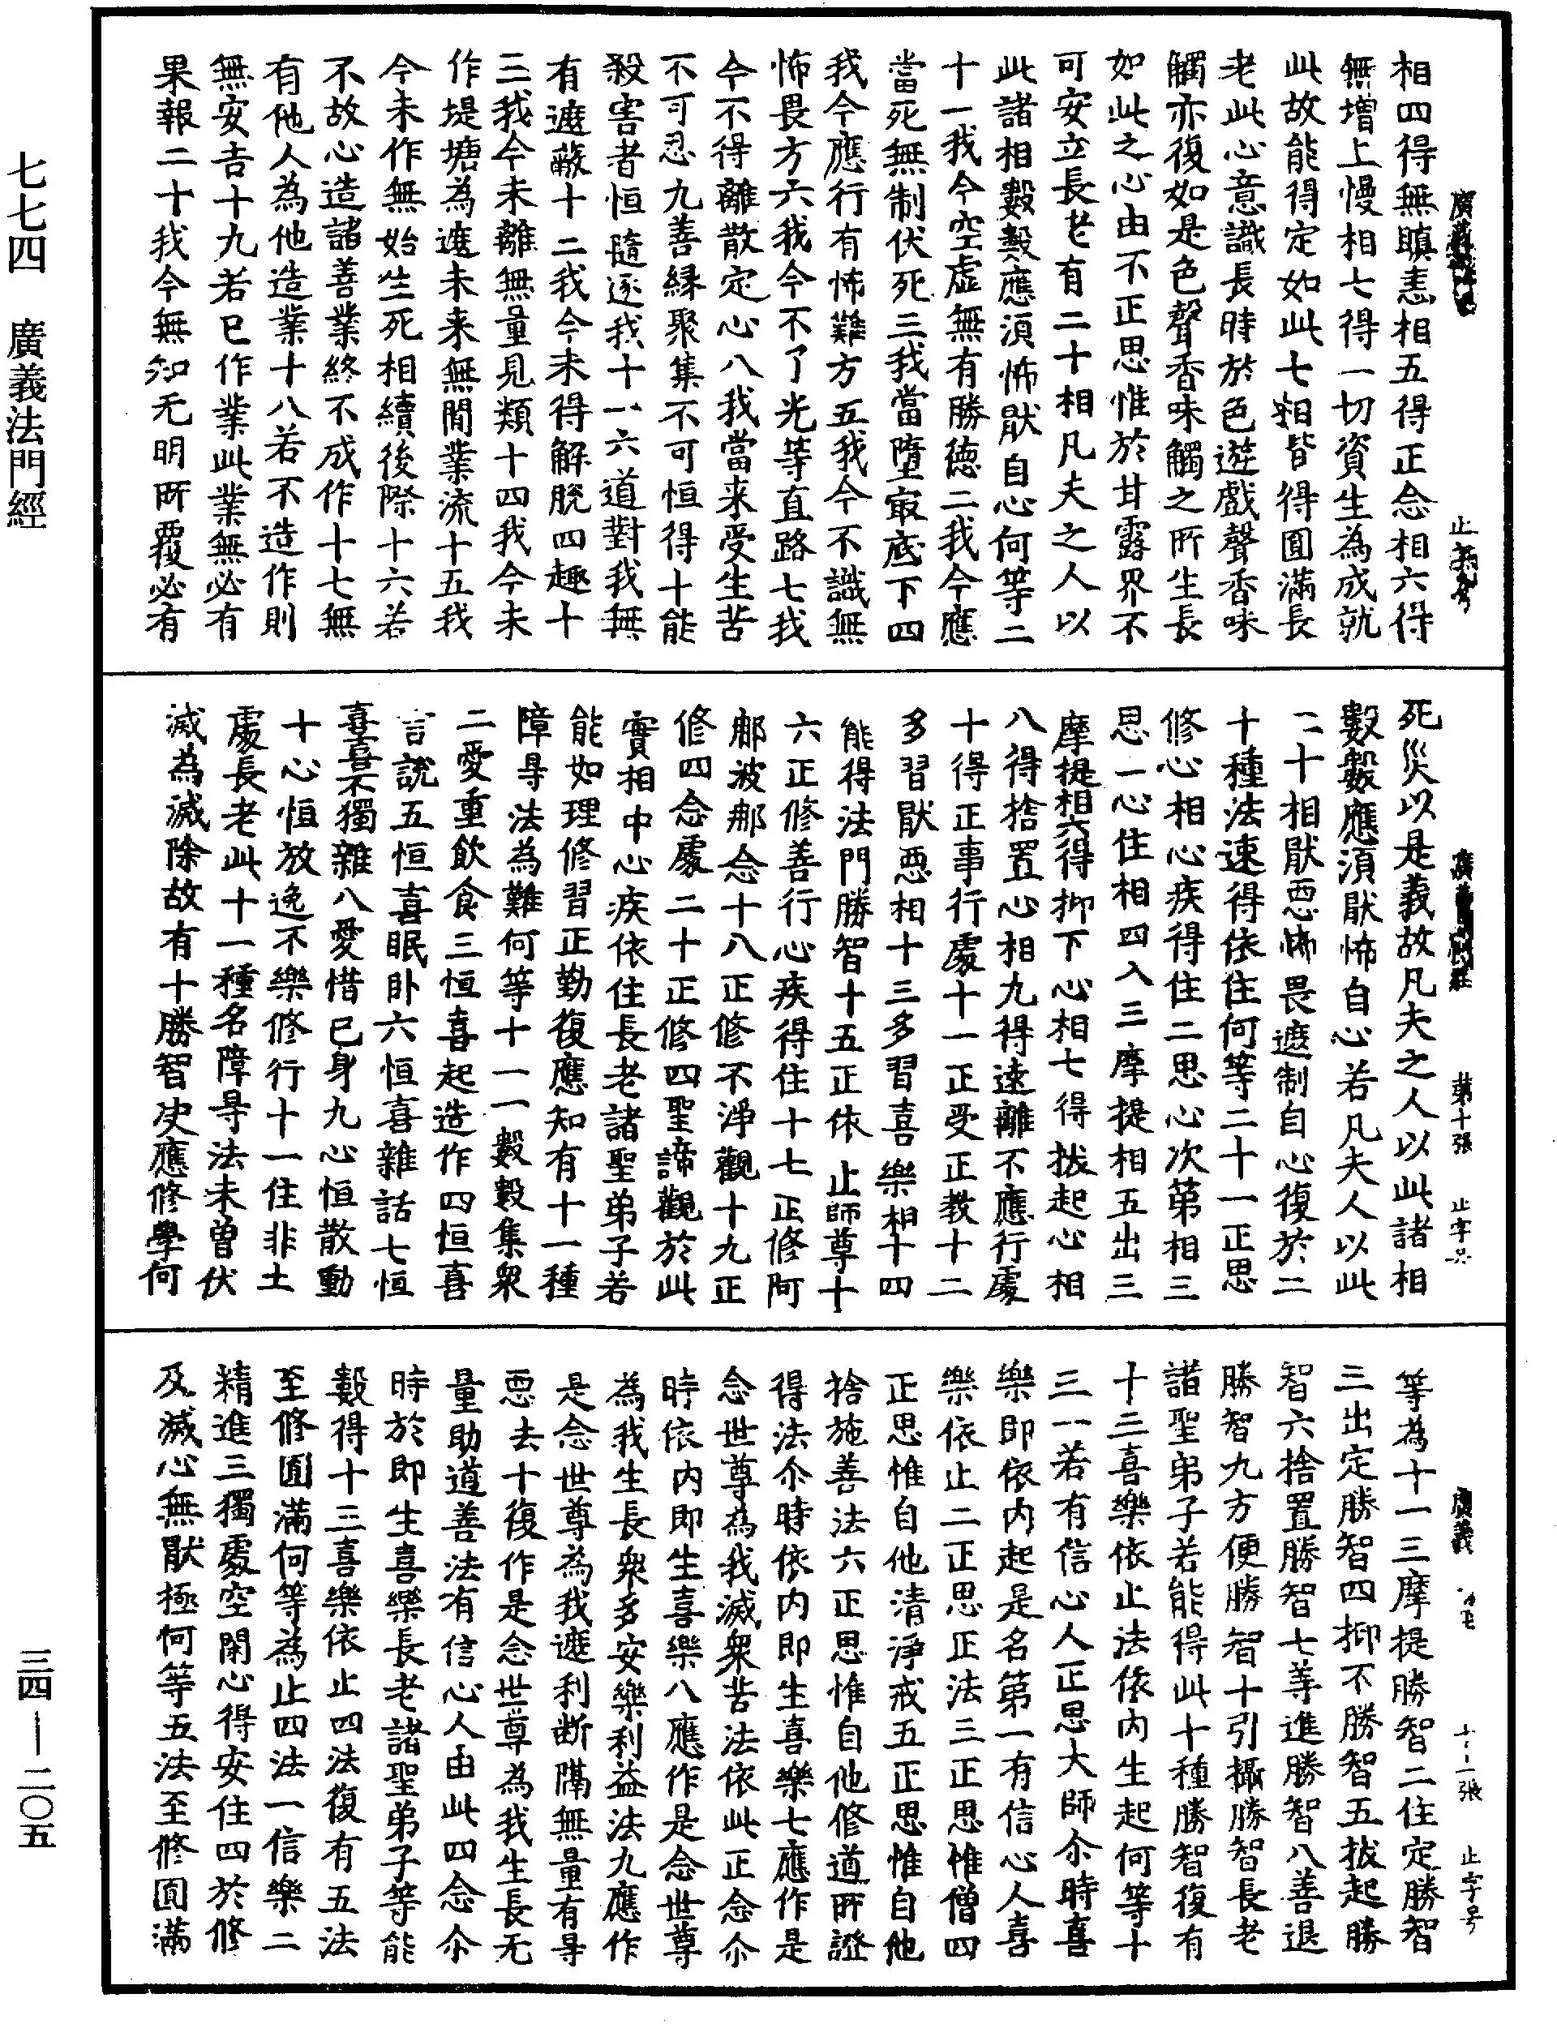 相四得無瞋恚相五得正念相六得
無增上慢相七得一切資生為成就
此故能得定如此七相皆得圓滿長
老此心意識長時於色遊戲聲香味
觸亦復如是色聲香味觸之所生長
如此之心由不正思惟於甘露界不
可安立長老有二十相凡夫之人以
此諸相數數應須怖猒自心何等二
十一我今空虛無有勝德二我今應
當死無制伏死三我當墮寂底下四
我今應行有怖難方五我今不識無
怖畏方六我今不了光等直路七我
今不得離散定心八我當来受生苦
不可忍九善緣聚集不可恒得十能
殺害者恒隨逐我十一六道對我無
有遮蔽十二我今未得解脫四趣十
三我今未離無量見類十四我今未
作堤塘為遮未来無間業流十五我
今未作無始生死相續後際十六若
不故心造諸善業終不成作十七無
有他人為他造業十八若不造作則
無安吉十九若已作業此業無必有
果報二十我今無知无明所覆必有
死災以是義故凡夫之人以此諸相
數數應須猒怖自心若凡夫人以此
二十相猒惡怖畏遮制自心復於二
十種法速得依住何等二十一正思
修心相心疾得住二思心次第相三
思一心住相四入三摩提相五出三
摩提相六得抑下心相七得拔起心相
八得捨置心相九得遠離不應行處
十得正事行處十一正受正教十二
多習猒惡相十三多習喜樂相十四
能得法門勝智十五正依止師尊十
六正修善行心疾得住十七正修阿
那波那念十八正修不淨觀十九正
修四念處二十正修四聖諦觀於此
實相中心疾依住長老諸聖弟子若
能如理修習正勤復應知有十一種
障㝵法為難何等十一一數數集衆
二愛重飲食三恒喜起造作四恒喜
言說五恒喜眠卧六恒喜雜話七恒
喜喜不獨雜八愛惜已身九心恒散動
十心恒放逸不樂修行十一住非土
處長老此十一種名障㝵法未曾伏
滅為滅除故有十勝智决應修學何
等為十一三摩提勝智二住定勝智
三出定勝智四抑不勝智五拔起勝
智六捨置勝智七等進勝智八善退
勝智九方便勝智十引攝勝智長老
諸聖弟子若能得此十種勝智復有
十三喜樂依止法依内生起何等十
三一若有信心人正思大師尒時喜
樂即依内起是名第一有信心人喜
樂依止二正思正法三正思惟僧四
正思惟自他清淨戒五正思惟自他
捨施善法六正思惟自他修道所證
得法尒時依内即生喜樂七應作是
念世尊為我滅衆苦法依此正念尒
時依内即生喜樂八應作是念世尊
為我生長衆多安樂利益法九應作
是念世尊為我遮利斷隔無量有㝵
惡去十復作是念世尊為我生長无
量助道善法有信心人由此四念尒
時於即生喜樂長老諸聖弟子等能
數得十三喜樂依止四法復有五法
至修圓滿何等為止四法一信樂二
精進三獨處空閑心得安住四於修
及滅心無猒極何等五法至修圓滿
廣義
第十張
止字号
十一張
止字号
七七四 廣義法門經
三四—二〇五